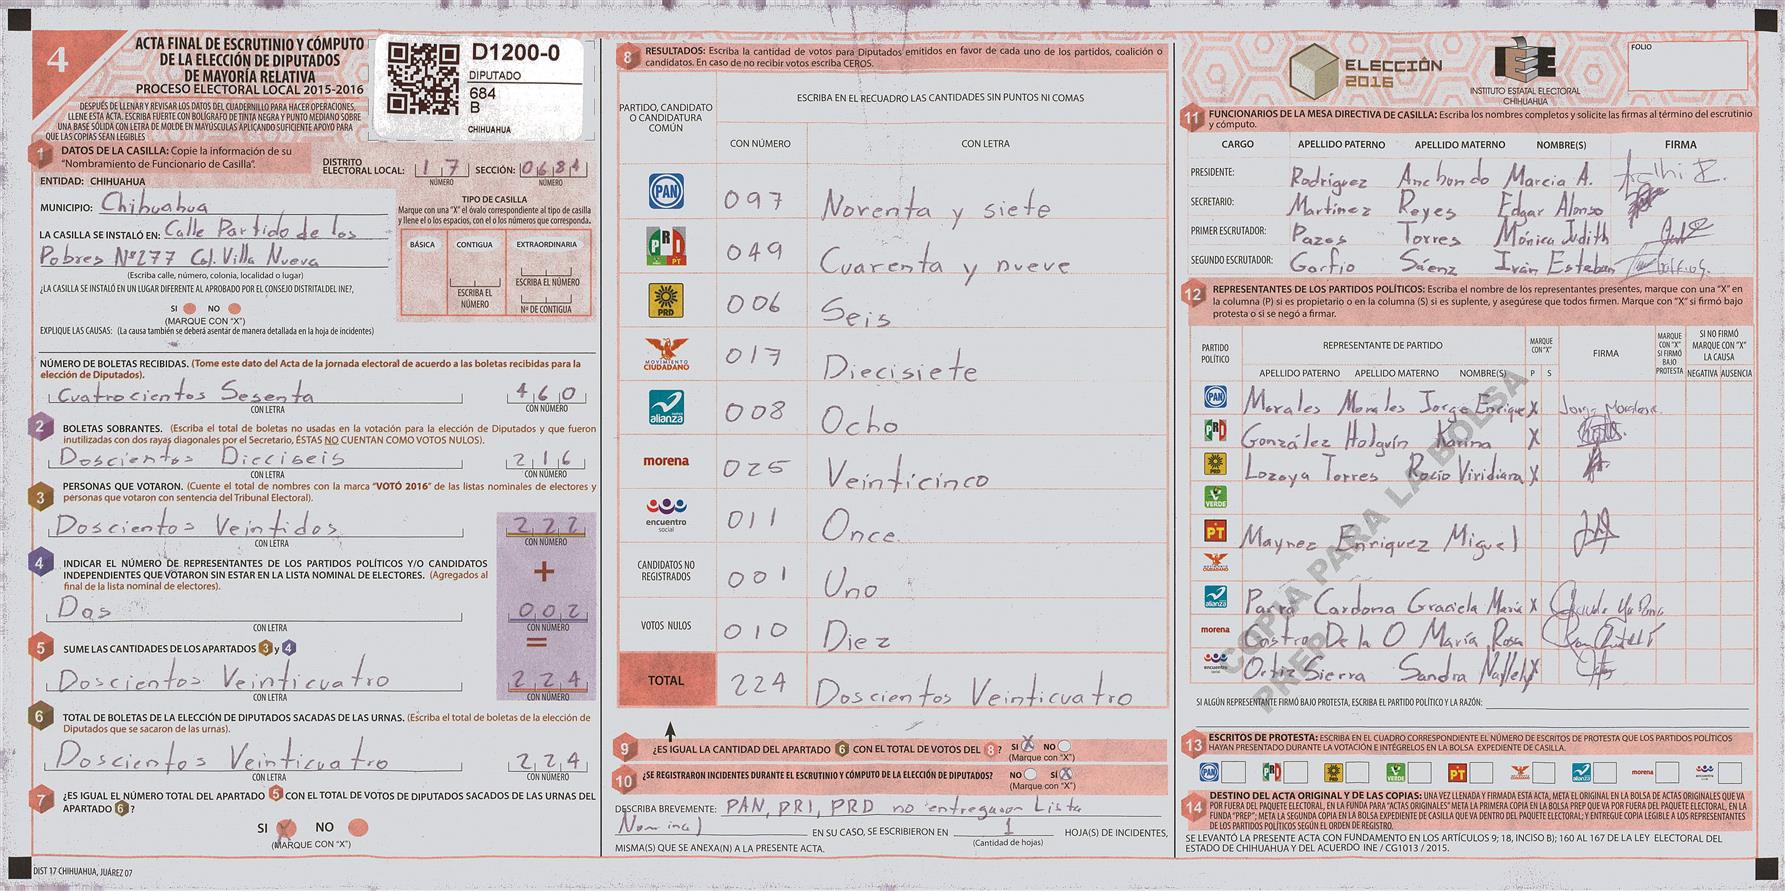 4
ACTA FINAL DE ESCRUTINIO Y CÓMPUTO
DE LA ELECCIÓN DE DIPUTADOS
DE MAYORÍA RELATIVA
PROCESO ELECTORAL LOCAL 2015-2016
DESPUÉS DE LLENAR Y REVISAR LOS DATOS DEL CUADERNILLO PARA HACER OPERACIONES,
LLENE ESTA ACTA. ESCRIBA FUERTE CON BOLÍGRAFO DE TINTA NEGRA Y PUNTO MEDIANO SOBRE
UNA BASE SÓLIDA CON LETRA DE MOLDE EN MAYÚSCULAS APLICANDO SUFICIENTE APOYO PARA
QUE LAS COPIAS SEAN LEGIBLES
D1200-0
DIPUTADO
684
B
CHIHUAHUA
1 DATOS DE LA CASILLA: Copie la información de su
"Nombramiento de Funcionario de Casilla".
DISTRITO ELECTORAL LOCAL: 17 SECCIÓN: 0684
NÚMERO NÚMERO
ENTIDAD: CHIHUAHUA
MUNICIPIO: Chihuahua
LA CASILLA SE INSTALÓ EN: Calle Partido de los
Pobres Nº277 Col. Villa Nueva
(Escriba calle, número, colonia, localidad o lugar)
¿LA CASILLA SE INSTALÓ EN UN LUGAR DIFERENTE AL APROBADO POR EL CONSEJO DISTRITALDEL INE?,
SI NO
(MARQUE CON "X")
EXPLIQUE LAS CAUSAS: (La causa también se deberá asentar de manera detallada en la hoja de incidentes)
TIPO DE CASILLA
Marque con una "X" el óvalo correspondiente al tipo de casilla
y llene el o los espacios, con el o los números que corresponda.
BÁSICA CONTIGUA EXTRAORDINARIA
ESCRIBA EL NÚMERO ESCRIBA EL NÚMERO
Nº DE CONTIGUA
NÚMERO DE BOLETAS RECIBIDAS. (Tome este dato del Acta de la jornada electoral de acuerdo a las boletas recibidas para la
elección de Diputados).
Cuatrocientos Sesenta 460
CON LETRA CON NÚMERO
2 BOLETAS SOBRANTES. (Escriba el total de boletas no usadas en la votación para la elección de Diputados y que fueron
inutilizadas con dos rayas diagonales por el Secretario, ÉSTAS NO CUENTAN COMO VOTOS NULOS).
Doscientos Dieciseis 216
CON LETRA CON NÚMERO
3 PERSONAS QUE VOTARON. (Cuente el total de nombres con la marca "VOTÓ 2016" de las listas nominales de electores y
personas que votaron con sentencia del Tribunal Electoral).
Doscientos Veintidos 222
CON LETRA CON NÚMERO
4 INDICAR EL NÚMERO DE REPRESENTANTES DE LOS PARTIDOS POLÍTICOS Y/O CANDIDATOS
INDEPENDIENTES QUE VOTARON SIN ESTAR EN LA LISTA NOMINAL DE ELECTORES. (Agregados al
final de la lista nominal de electores).
+
Dos 002
CON LETRA CON NÚMERO
=
5 SUME LAS CANTIDADES DE LOS APARTADOS 3 y 4
Doscientos Veinticuatro 224
CON LETRA CON NÚMERO
6 TOTAL DE BOLETAS DE LA ELECCIÓN DE DIPUTADOS SACADAS DE LAS URNAS. (Escriba el total de boletas de la elección de
Diputados que se sacaron de las urnas).
Doscientos Veinticuatro 224
CON LETRA CON NÚMERO
7 ¿ES IGUAL EL NÚMERO TOTAL DEL APARTADO 5 CON EL TOTAL DE VOTOS DE DIPUTADOS SACADOS DE LAS URNAS DEL
APARTADO 6?
SI X NO
(MARQUE CON "X")
DIST 17 CHIHUAHUA, JUÁREZ 07
8 RESULTADOS: Escriba la cantidad de votos para Diputados emitidos en favor de cada uno de los partidos, coalición o
candidatos. En caso de no recibir votos escriba CEROS.
PARTIDO, CANDIDATO O CANDIDATURA COMÚN
ESCRIBA EN EL RECUADRO LAS CANTIDADES SIN PUNTOS NI COMAS
CON NÚMERO CON LETRA
PAN 097 Noventa y siete
PRI PT 049 Cuarenta y nueve
PRD 006 Seis
MOVIMIENTO CIUDADANO 017 Diecisiete
nueva alianza 008 Ocho
morena 025 Veinticinco
encuentro social 011 Once
CANDIDATOS NO REGISTRADOS 001 Uno
VOTOS NULOS 010 Diez
TOTAL 224 Doscientos Veinticuatro
9 ¿ES IGUAL LA CANTIDAD DEL APARTADO 6 CON EL TOTAL DE VOTOS DEL 8? SI X NO
(Marque con "X")
10 ¿SE REGISTRARON INCIDENTES DURANTE EL ESCRUTINIO Y CÓMPUTO DE LA ELECCIÓN DE DIPUTADOS? NO SÍ X
(Marque con "X")
DESCRIBA BREVEMENTE: PAN, PRI, PRD no entregaron Lista
Nominal EN SU CASO, SE ESCRIBIERON EN 1 HOJA(S) DE INCIDENTES,
(Cantidad de hojas)
MISMA(S) QUE SE ANEXA(N) A LA PRESENTE ACTA.
ELECCIÓN
2016
IEE
INSTITUTO ESTATAL ELECTORAL
CHIHUAHUA
FOLIO
11 FUNCIONARIOS DE LA MESA DIRECTIVA DE CASILLA: Escriba los nombres completos y solicite las firmas al término del escrutinio
y cómputo.
CARGO APELLIDO PATERNO APELLIDO MATERNO NOMBRE(S) FIRMA
PRESIDENTE: Rodríguez Anchondo Marcia A.
SECRETARIO: Martínez Reyes Edgar Alonso
PRIMER ESCRUTADOR: Pazos Torres Mónica Judith
SEGUNDO ESCRUTADOR: Garfio Sáenz Iván Esteban
12 REPRESENTANTES DE LOS PARTIDOS POLÍTICOS: Escriba el nombre de los representantes presentes, marque con una "X" en
la columna (P) si es propietario o en la columna (S) si es suplente, y asegúrese que todos firmen. Marque con "X" si firmó bajo
protesta o si se negó a firmar.
PARTIDO POLÍTICO REPRESENTANTE DE PARTIDO MARQUE CON "X" FIRMA MARQUE CON "X" SI FIRMÓ BAJO PROTESTA SI NO FIRMÓ MARQUE CON "X" LA CAUSA
APELLIDO PATERNO APELLIDO MATERNO NOMBRE(S) P S NEGATIVA AUSENCIA
PAN Morales Morales Jorge Enrique X
PRI González Holguín Karina X
PRD Lozoya Torres Rocío Viridiana X
VERDE
PT Maynez Enriquez Miguel
MOVIMIENTO CIUDADANO
alianza Parra Cardona Graciela María X
morena Castro De la O María Rosa
encuentro social Ortiz Sierra Sandra Nallely X
COPIA PARA LA BOLSA
PREP
SI ALGÚN REPRESENTANTE FIRMÓ BAJO PROTESTA, ESCRIBA EL PARTIDO POLÍTICO Y LA RAZÓN:
13 ESCRITOS DE PROTESTA: ESCRIBA EN EL CUADRO CORRESPONDIENTE EL NÚMERO DE ESCRITOS DE PROTESTA QUE LOS PARTIDOS POLÍTICOS
HAYAN PRESENTADO DURANTE LA VOTACIÓN E INTÉGRELOS EN LA BOLSA EXPEDIENTE DE CASILLA.
PAN PRI PRD VERDE PT alianza morena
14 DESTINO DEL ACTA ORIGINAL Y DE LAS COPIAS: UNA VEZ LLENADA Y FIRMADA ESTA ACTA, META EL ORIGINAL EN LA BOLSA DE ACTAS ORIGINALES QUE VA
POR FUERA DEL PAQUETE ELECTORAL, EN LA FUNDA PARA "ACTAS ORIGINALES" META LA PRIMERA COPIA EN LA BOLSA PREP QUE VA POR FUERA DEL PAQUETE ELECTORAL, EN LA
FUNDA "PREP"; META LA SEGUNDA COPIA EN LA BOLSA EXPEDIENTE DE CASILLA QUE VA DENTRO DEL PAQUETE ELECTORAL; Y ENTREGUE COPIA LEGIBLE A LOS REPRESENTANTES
DE LOS PARTIDOS POLÍTICOS SEGÚN EL ORDEN DE REGISTRO.
SE LEVANTÓ LA PRESENTE ACTA CON FUNDAMENTO EN LOS ARTÍCULOS 9; 18, INCISO B); 160 AL 167 DE LA LEY ELECTORAL DEL
ESTADO DE CHIHUAHUA Y DEL ACUERDO INE / CG1013 / 2015.